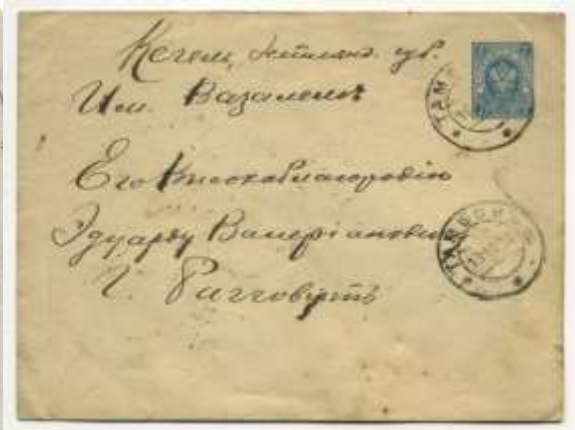 Кегелъ Эстлянд. губ.
Им. Вазалемъ
Его Высокоблагородію
Эдуарду Валеріановичу
Г.
ТАМБОВЪ